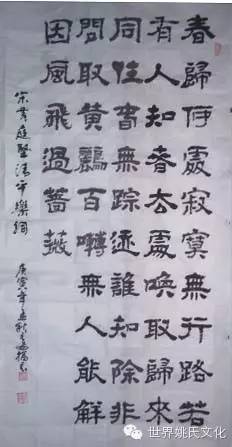 春歸何處寂寞無行路若
有人知春去處喚取歸來
同住春無踪迹誰知除非
問取黄鸝百囀無人能解
因風飛過薔薇
宋黄庭堅清平樂詞
庚寅年
世界姚氏文化